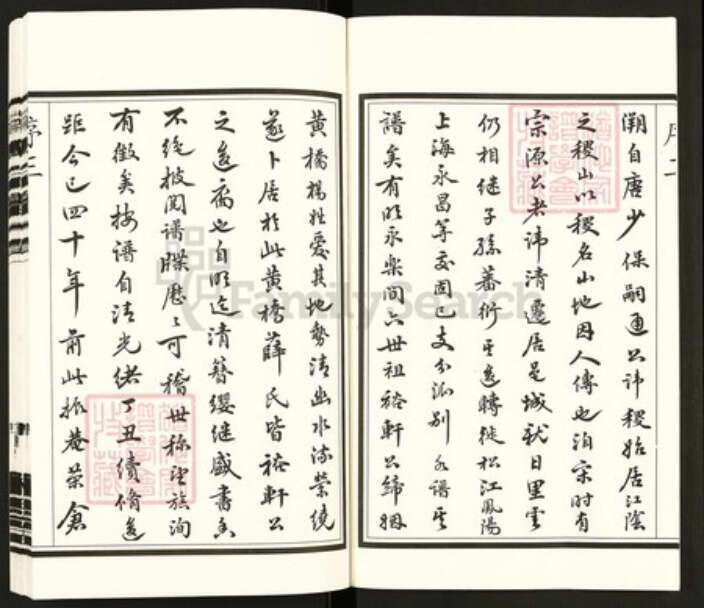 序二
溯自唐少保嗣通公諱稷始居江陰
之稷山以稷名山地因人傳也洎宋時有
宗源公者諱清遷居是城試日里雲
仍相繼子孫蕃衍至遠時徙松江鳳陽
上海永昌等交固已支分派別各譜其
譜矣有明永樂間六世祖裕軒公締姻
黃橋楊姓愛其地勢清幽水流縈繞
遂卜居於此黃橋薛氏皆裕軒公
之遠裔也自明迄清簪纓繼盛書香
不絕披閱譜牒歷歷可稽世稱望族洵
有徵矣按譜自清光緒丁丑續脩迄
距今已四十年前此振菴榮倉
序二
FamilySearch